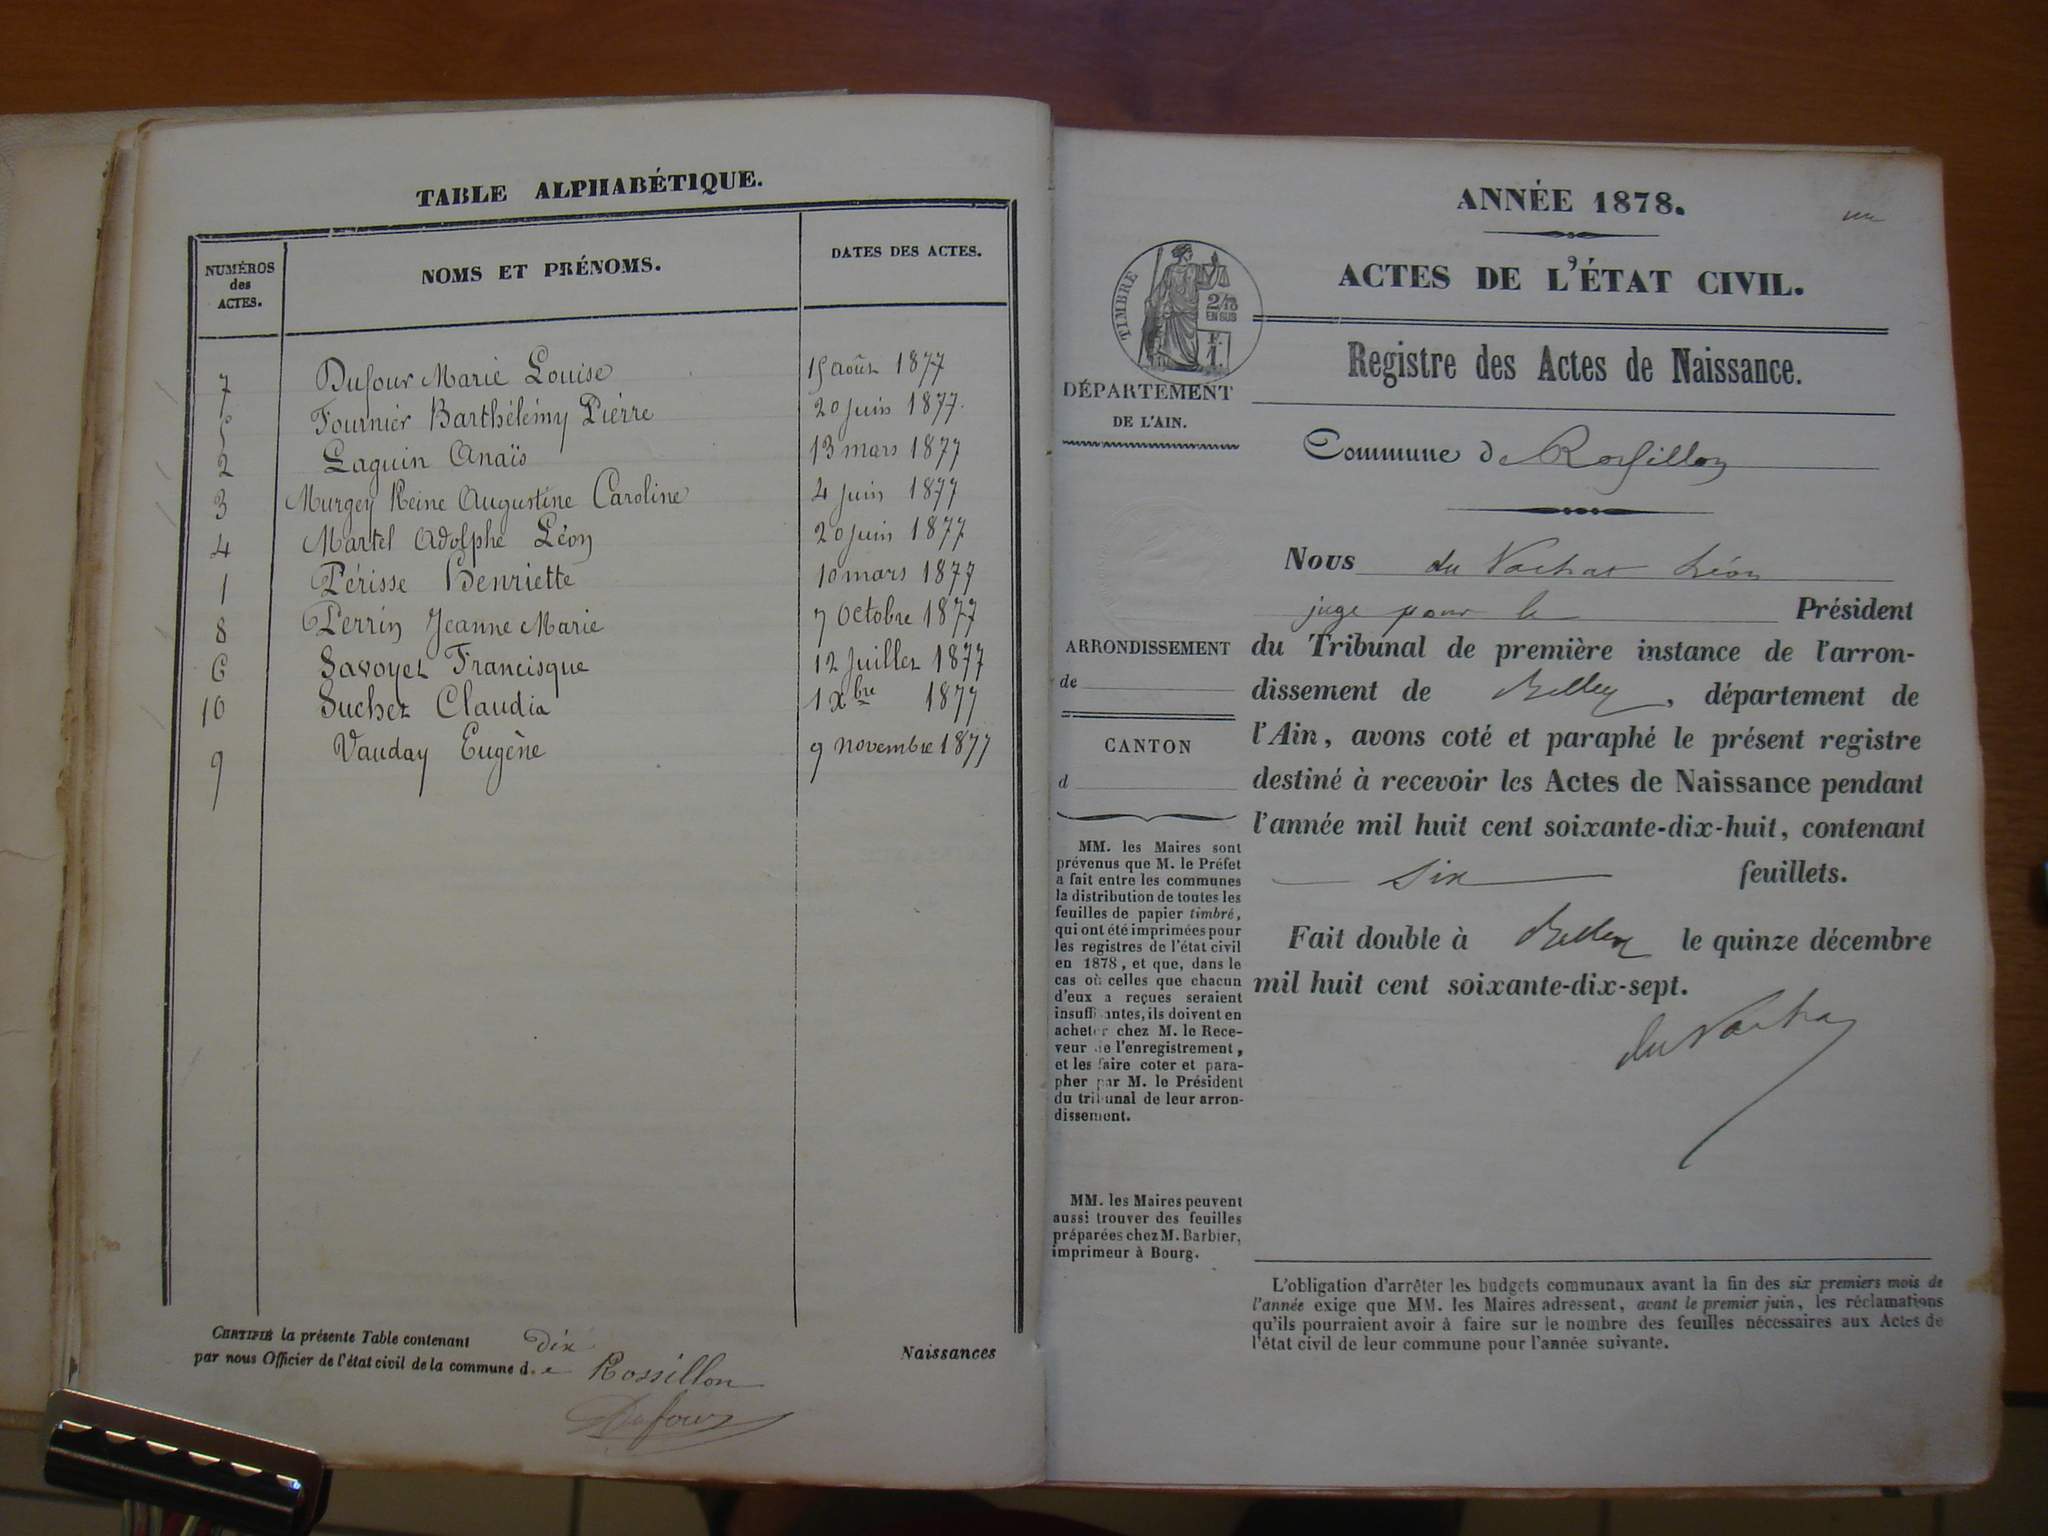 TABLE ALPHABÉTIQUE.
NUMÉROS des ACTES. NOMS ET PRÉNOMS. DATES DES ACTES.
7 Dufour Marie Louise 15 août 1877
5 Fournier Barthélémy Pierre 20 juin 1877
2 Laguin Anaïs 13 mars 1877
3 Murgey Reine Augustine Caroline 4 juin 1877
4 Martel Adolphe Léon 20 juin 1877
1 Périsse Henriette 10 mars 1877
8 Perrin Jeanne Marie 7 Octobre 1877
6 Savoyet Francisque 12 Juillet 1877
10 Suchet Claudia 1 Xbre 1877
9 Vauday Eugène 9 novembre 1877
CERTIFIÉ la présente Table contenant Dix Naissances
par nous Officier de l'état civil de la commune de Rossillon
Dufour
ANNÉE 1878.
ACTES DE L'ÉTAT CIVIL.
TIMBRE
2/10
EN SUS
F.
1.
Registre des Actes de Naissance.
DÉPARTEMENT
DE L'AIN.
Commune de Rossillon
Nous du Vachat Léon
juge pour le Président
ARRONDISSEMENT
de
CANTON
d
du Tribunal de première instance de l'arron-
dissement de Belley, département de
l'Ain, avons coté et paraphé le présent registre
destiné à recevoir les Actes de Naissance pendant
l'année mil huit cent soixante-dix-huit, contenant
six feuillets.
Fait double à Belley le quinze décembre
mil huit cent soixante-dix-sept.
du Vachat
MM. les Maires sont
prévenus que M. le Préfet
a fait entre les communes
la distribution de toutes les
feuilles de papier timbré,
qui ont été imprimées pour
les registres de l'état civil
en 1878, et que, dans le
cas où celles que chacun
d'eux a reçues seraient
insuffisantes, ils doivent en
acheter chez M. le Rece-
veur de l'enregistrement,
et les faire coter et para-
pher par M. le Président
du tribunal de leur arron-
dissement.
MM. les Maires peuvent
aussi trouver des feuilles
préparées chez M. Barbier,
imprimeur à Bourg.
L'obligation d'arrêter les budgets communaux avant la fin des six premiers mois de
l'année exige que MM. les Maires adressent, avant le premier juin, les réclamations
qu'ils pourraient avoir à faire sur le nombre des feuilles nécessaires aux Actes de
l'état civil de leur commune pour l'année suivante.